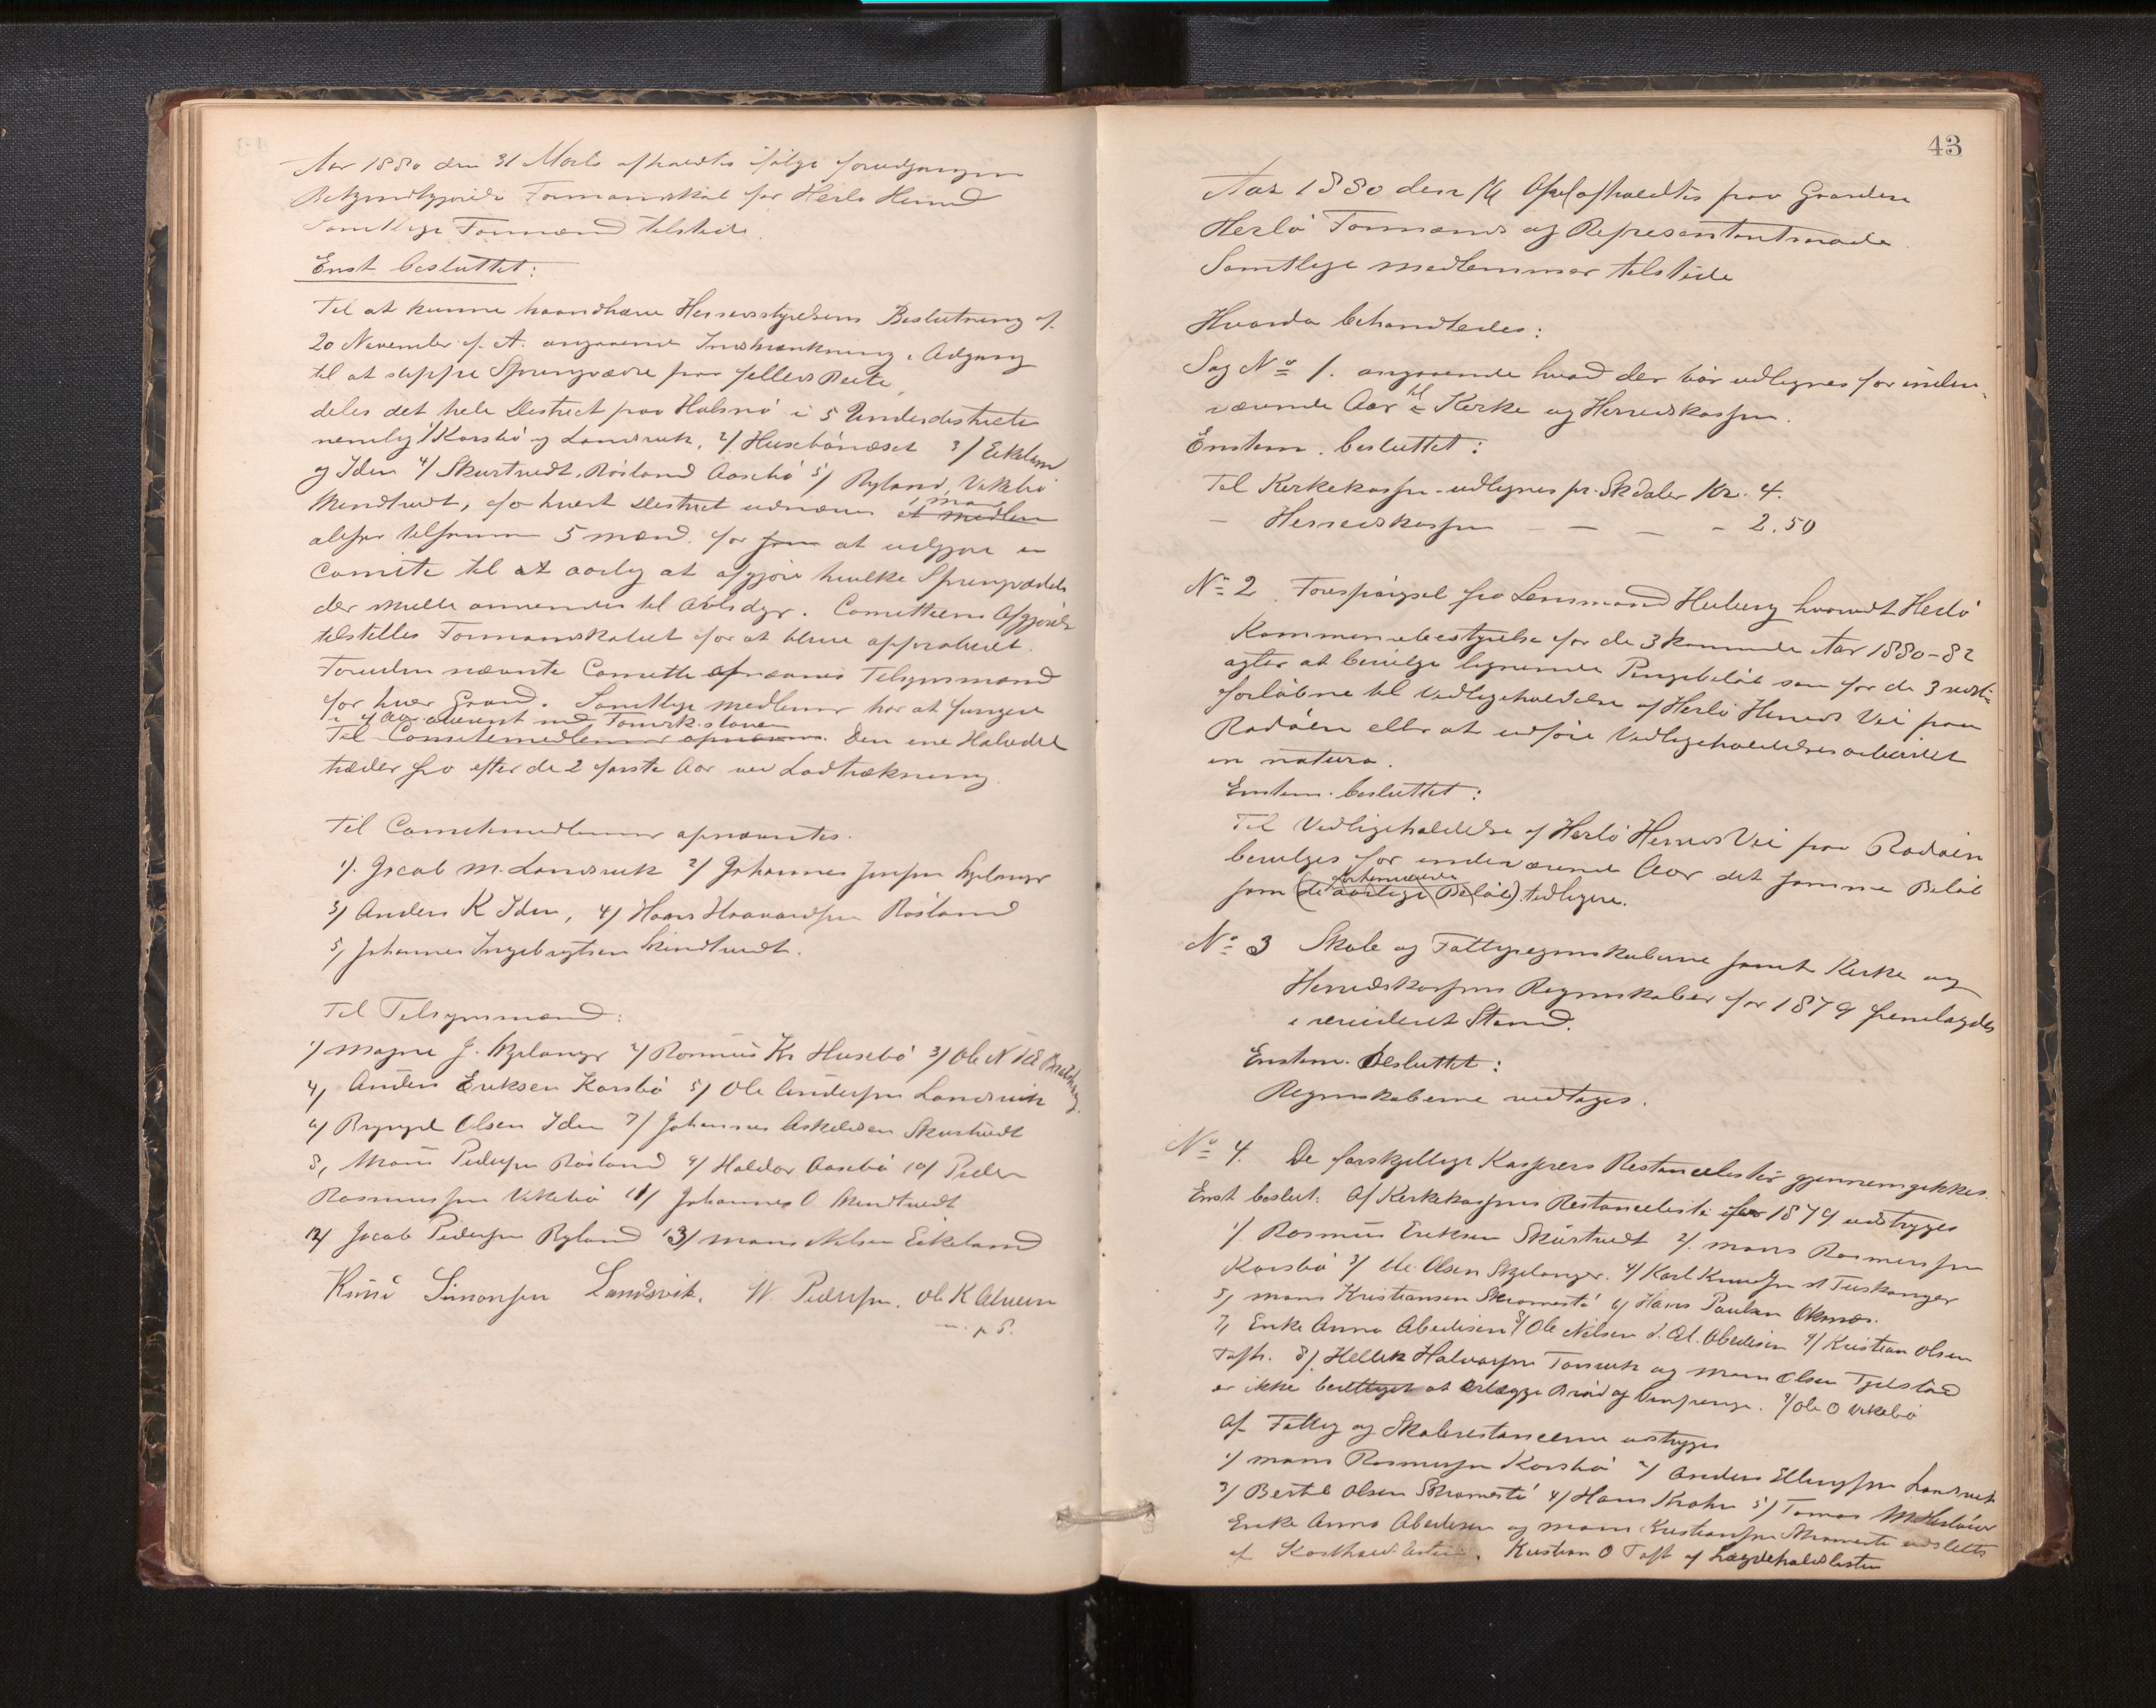 Aar 1880 den 31 Marts afholdtes ifølge forudgangen
Bekjendtgjørelse Formandskab for Herlø Herred
Samtlige Formænd tilstede.
Enst besluttet:
Til at kunne haandhæve Herredsstyrelsens Beslutning af
20 November f. A. angaaende Indskrænkning i Adgang
til at slippe Sprengvædre paa fælleds Beite,
deles det hele District paa Holsnø i 5 Underdistricte
nemlig 1/ Korsbø og Landsvik, 2/ Husebønæset 3/ Eikeland
og Iden 4/ Skurtvedt, Røsland Aasebø 5/ Ryland, Vikebø
Mundtvedt, for hvert District udnævnes et medlem
1 man
altsaa tilsammen 5 mænd. for som at udgjøre en
Comite til at aarlig at afgjøre hvilke Sprengvædere
der skulle anvendes til Avlsdyr. Comitteens Afgjørelse
tilstilles Formandskabet for at blive approberet.
Foruden nævnte Comitte opnævnes Tilsynsmænd
for hver Grand. Samtlige medlemer har at fungere
i 4 Aar overenst med Formsk. loven
Til Comitemedlemmer opnævnes. Den ene Halvdel
træder fra efter de 2 første Aar ved Lodtrækning.
Til Comitemedlemmer opnævntes.
1). Jacob M. Landsvik 2/ Johannes Jensen Skjelanger
3/ Anders K Iden, 4/ Hans Haavardsen Røsland
5/ Johannes Ingebrigtsen Skindtvedt.
Til Tilsynsmænd:
1/ Magne J. Skjelanger 2/ Rasmus Kr Husebø 3/ Ole N
4/ Anders Eriksen Korsbø 5/ Ole Andersen Landsvik
6/ Brynjel Olsen Iden 7/ Johannes Askeldsen Skurtvedt
8, Mons Pedersen Røsland 9/ Haldor Aasebø 10/ Peder
Rasmussen Vikebø 11/ Johannes O Mundtvedt
12/ Jacob Pedersen Ryland 13/ Mons Nilsen Eikeland
Knud Simonsen Landsvik. W. Pedersen. Ole K Alveren
m. p P.
43
Aar 1880 den 1/4 April afholdtes paa Gaarden
Herlø Formænds og Representantmøde.
Samtlige medlemmer tilstede
Hvorda behandledes:
Sag No 1. angaaende hvad der bør udlignes for inde-
værende Aar til Kirke og Herredskassen.
Enstem. besluttet:
Til Kirkekassen udlignes pr. Skdaler Kr. 4.
- Herredskassen — — - 2.50
No 2. Forespørgsel fra Lensmand Heiberg hvorvidt Herlø
Kommunebestyrelse for de 3 kommende Aar 1880-82
agter at bevilge lignende Pengebeløb som for de 3 sidst
forløbne til Vedligeholdelse af Herlø Herreds Vei paa
Radøen eller at udføre Vedligeholdelsesarbeidet
in natura.
Enstem. besluttet:
Til Vedligeholdelse af Herlø Herreds Vei paa Radøen
bevilges for indeværende Aar det samme Beløb
som (de aarlige Beløb) tidligere.
No 3 Skole og Fattigregnskaberne samt Kirke og
Herredskassens Regnskaber for 1879 fremlagdes
i revideret Stand.
Enstem. Besluttet:
Regnskaberne vedtages.
No 4. De forskjellige Kassers Restancelister gjennemgikkes.
Enst beslut: Af Kirkekassens Restanceliste for 1879 udstryges
1/ Rasmus Eriksen Skurtvedt 2/. Mons Rasmussen
Korsbø 3/ Ole Olsen Skjelanger. 4/ Karl Knudsen st Tuskanger
5/ Mons Kristiansen Skromestø 6/ Hans Paulsen Oksnæs.
7, Enke Anna Abelisen 8/ Ole Nilsen d. Al. Abelisen 9/ Kristian Olsen
Toft. 8/. Hellik Halvorsen Tonsvik og Mons Olsen Tjelstad
er ikke berettiget at erlægge Brød og Vinpenge. 9/ Ole O Vikebø
Af Fattig og Skolerestancerne udstryges
1/ Mons Rasmussen Korsbø 2/ Anders Ellingsen Landsvik
3/ Bertel Olsen Skromestø 4/ Hans Krohn 5/ Tomas M Herløver
Enke Anna Abelisen og Mons Kristiansen Skromestø udslettes
af. Kristian O Toft af Lægdeholdslisten